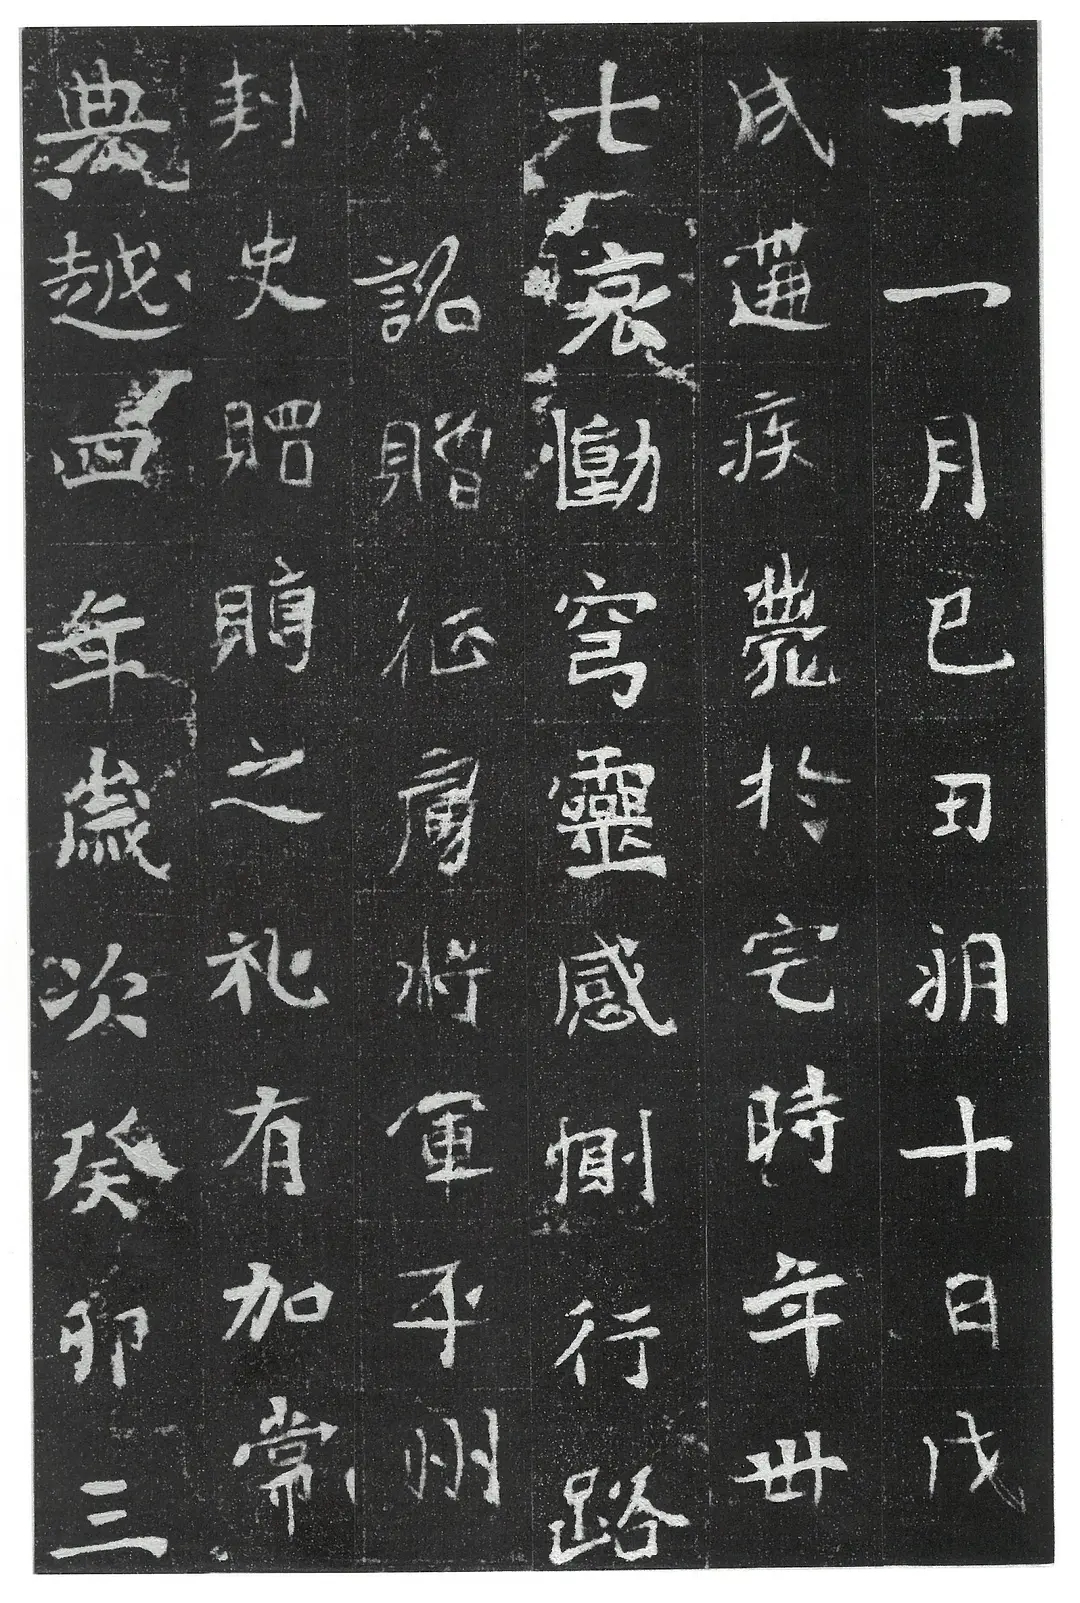 十一月己丑朔十日戊
戌遘疾薨於宅時年卅
七哀慟穹靈感惻行路
詔贈征虜將軍平州
刺史賵賻之礼有加常
典越四年歲次癸卯三